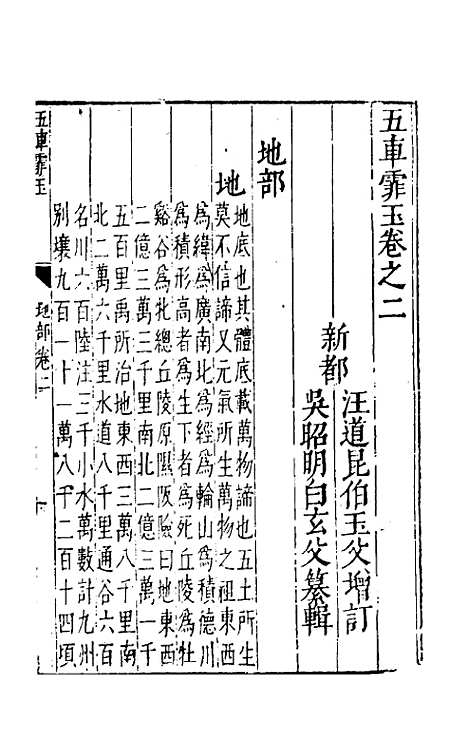 五車霏玉卷之二
新都
汪道昆伯玉父增訂
吳昭明白玄父纂輯
地部
地
地底也其體底載萬物諦也五土所生
莫不信諦又元氣所生萬物之祖東西
為緯為廣南北為經為輪山為積德川
為積形高者為生下者為死丘陵為牡
谿谷為牝總丘陵原隰阪險曰地東西
二億三萬三千里南北二億三萬一千
五百里禹所治地東西三萬八千里南
北二萬六千里水道八千里通谷六百
名川六百陸注三千小水萬數計九州
別壤九百一十一萬八千二百十四頃
五車霏玉
地部卷二